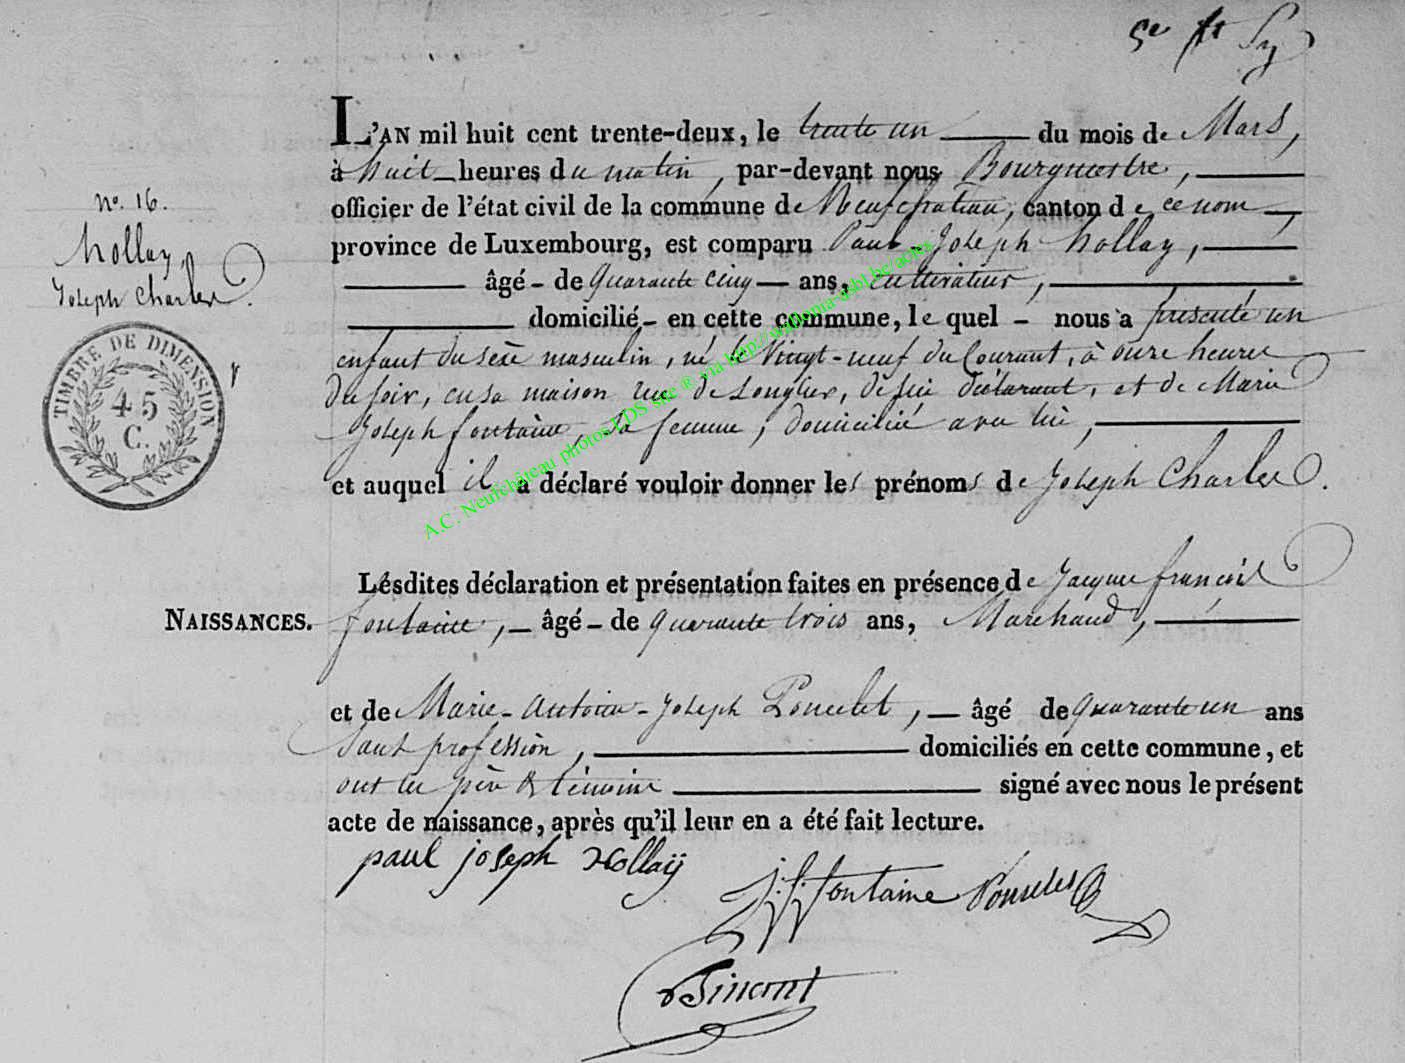 5e
L'AN mil huit cent trente-deux, le trente un du mois de Mars,
à huit heures du matin, par-devant nous Bourgmestre,
officier de l'état civil de la commune de Neufchateau, canton de ce nom
province de Luxembourg, est comparu Paul-Joseph hollay,
âgé - de quarante cinq ans, cultivateur,
domicilié - en cette commune, le quel - nous a présenté un
enfant du sexe masculin, né le vingt-neuf du Courant, à onze heures
du soir, en sa maison rue de Longlier, de lui déclarant, et de Marie
Joseph fontaine, sa femme, domiciliée avec lui,
et auquel il a déclaré vouloir donner les prénoms de Joseph Charles.
no. 16.
hollay,
Joseph Charles.
TIMBRE DE DIMENSION
45
C.
A.C. Neufchâteau photos LDS site ® via http://walloma-asbl.be/
Lesdites déclaration et présentation faites en présence de Jacques françois
NAISSANCES.
fontaine, - âgé - de quarante trois ans, Marchand,
et de Marie-Antoine-Joseph Poncelet, - âgé de quarante un ans
sans profession, domiciliés en cette commune, et
ont les père & témoins signé avec nous le présent
acte de naissance, après qu'il leur en a été fait lecture.
paul joseph Hollaÿ
J. f. fontaine Poncelet